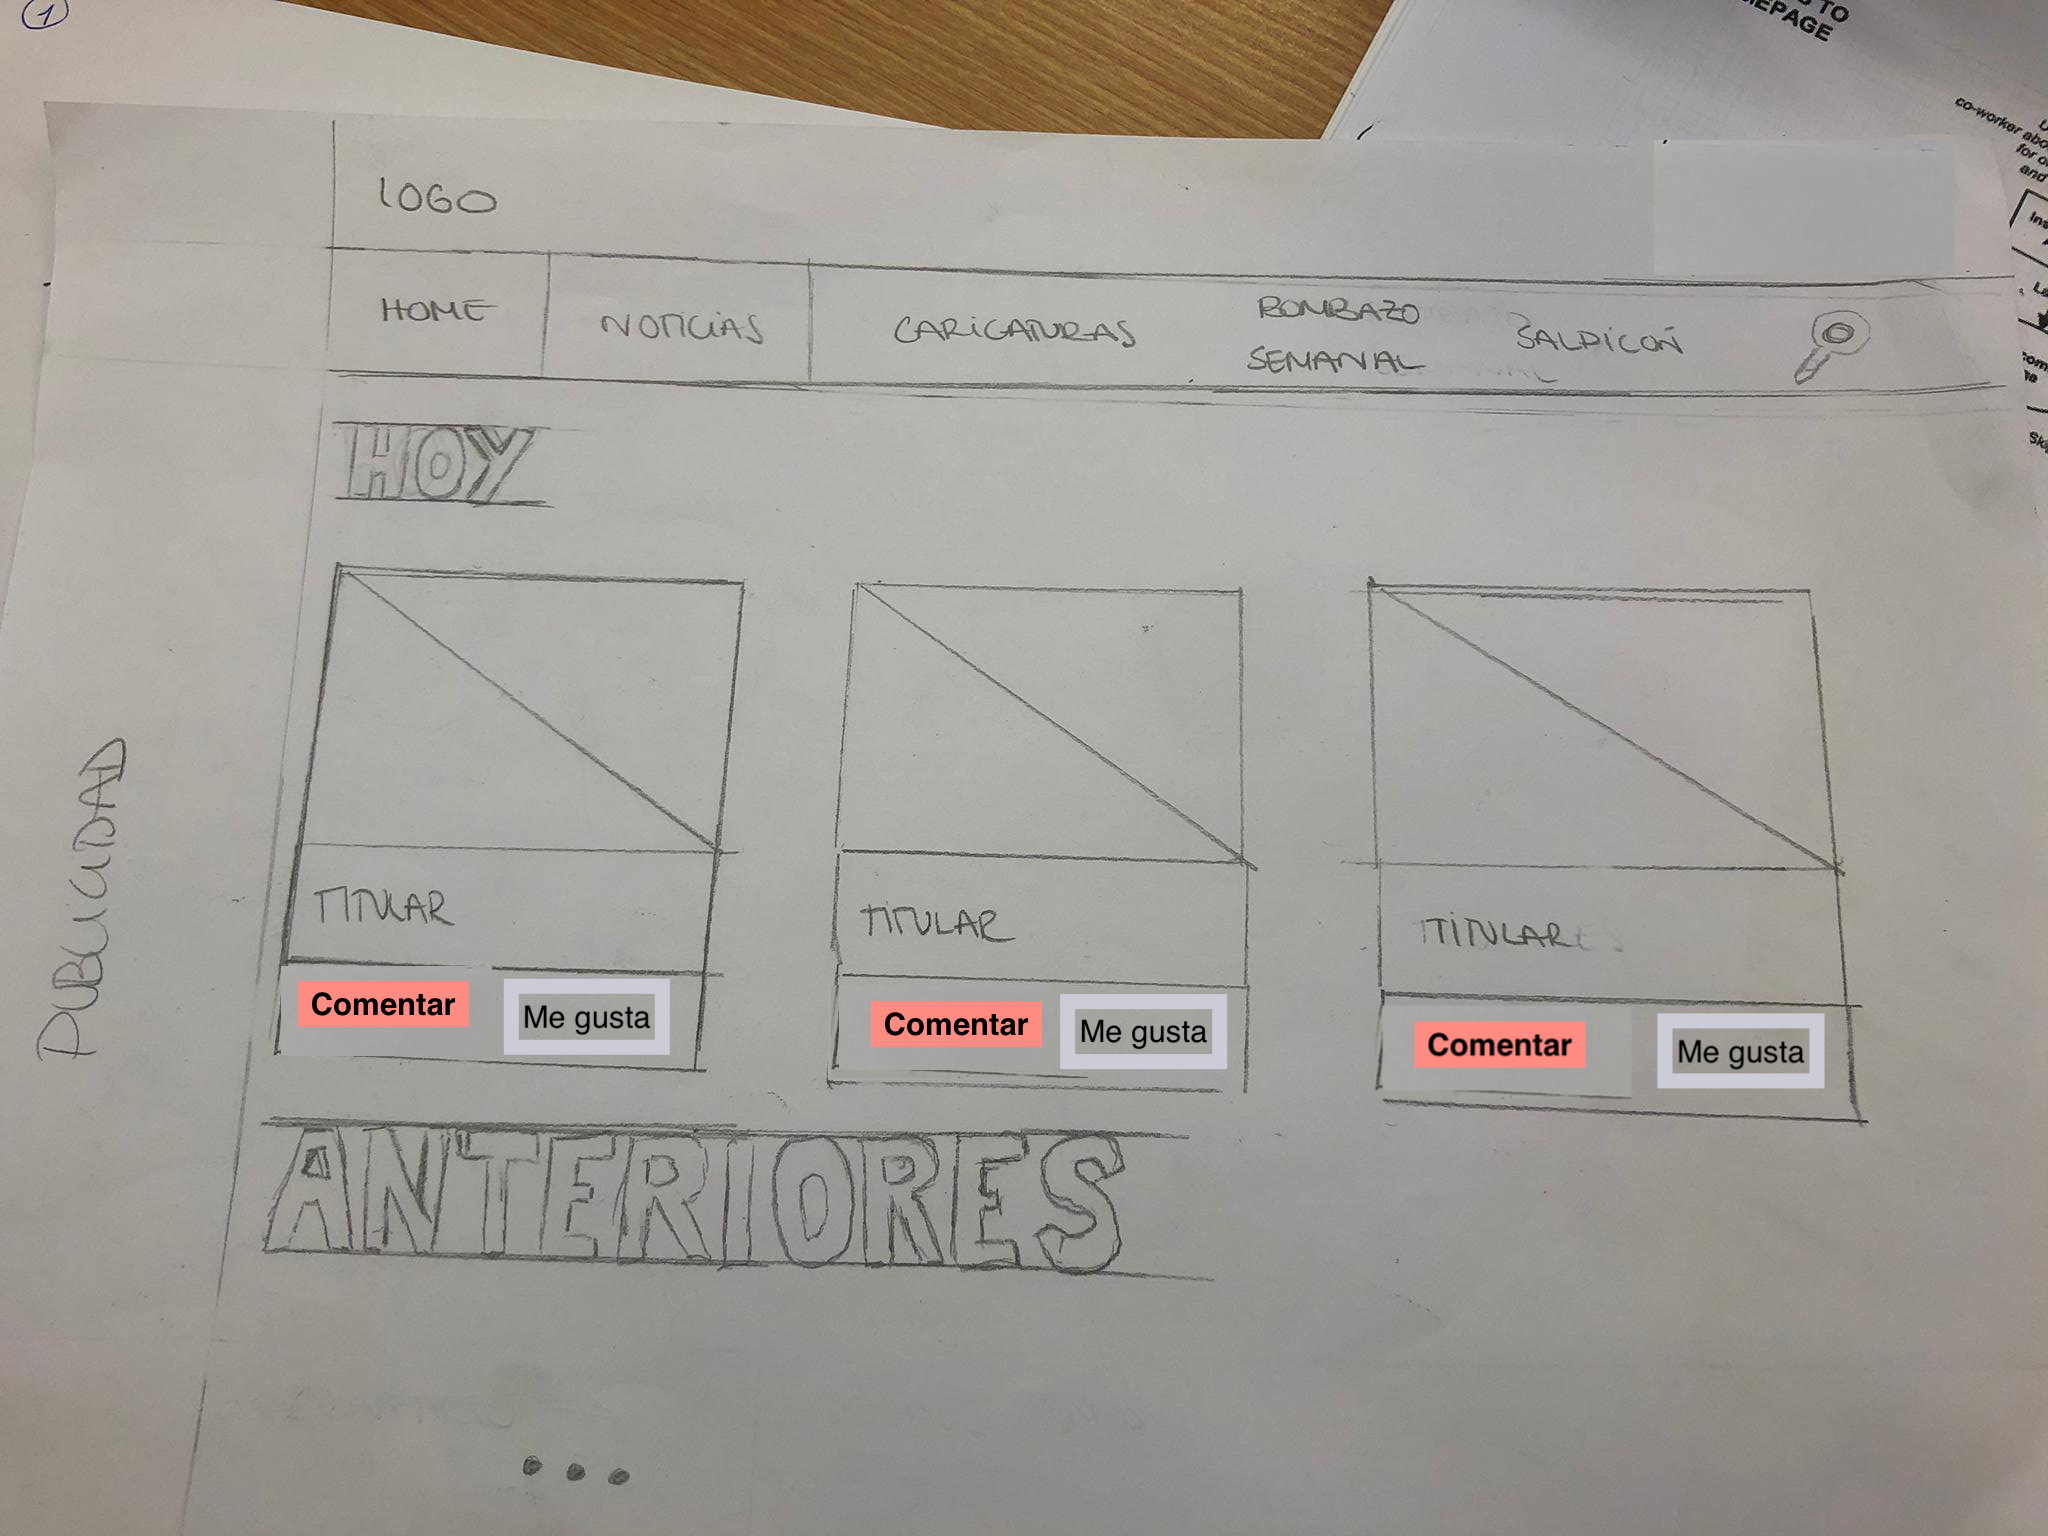 1
TO
MEPAGE
co-worker abo
for o
and
LOGO
HOME
NOTICIAS
CARICATURAS
BOMBAZO
SEMANAL
SALPICON
HOY
PUBLICIDAD
TITULAR
TITULAR
TITULAR
Comentar
Me gusta
Comentar
Me gusta
Comentar
Me gusta
ANTERIORES
...